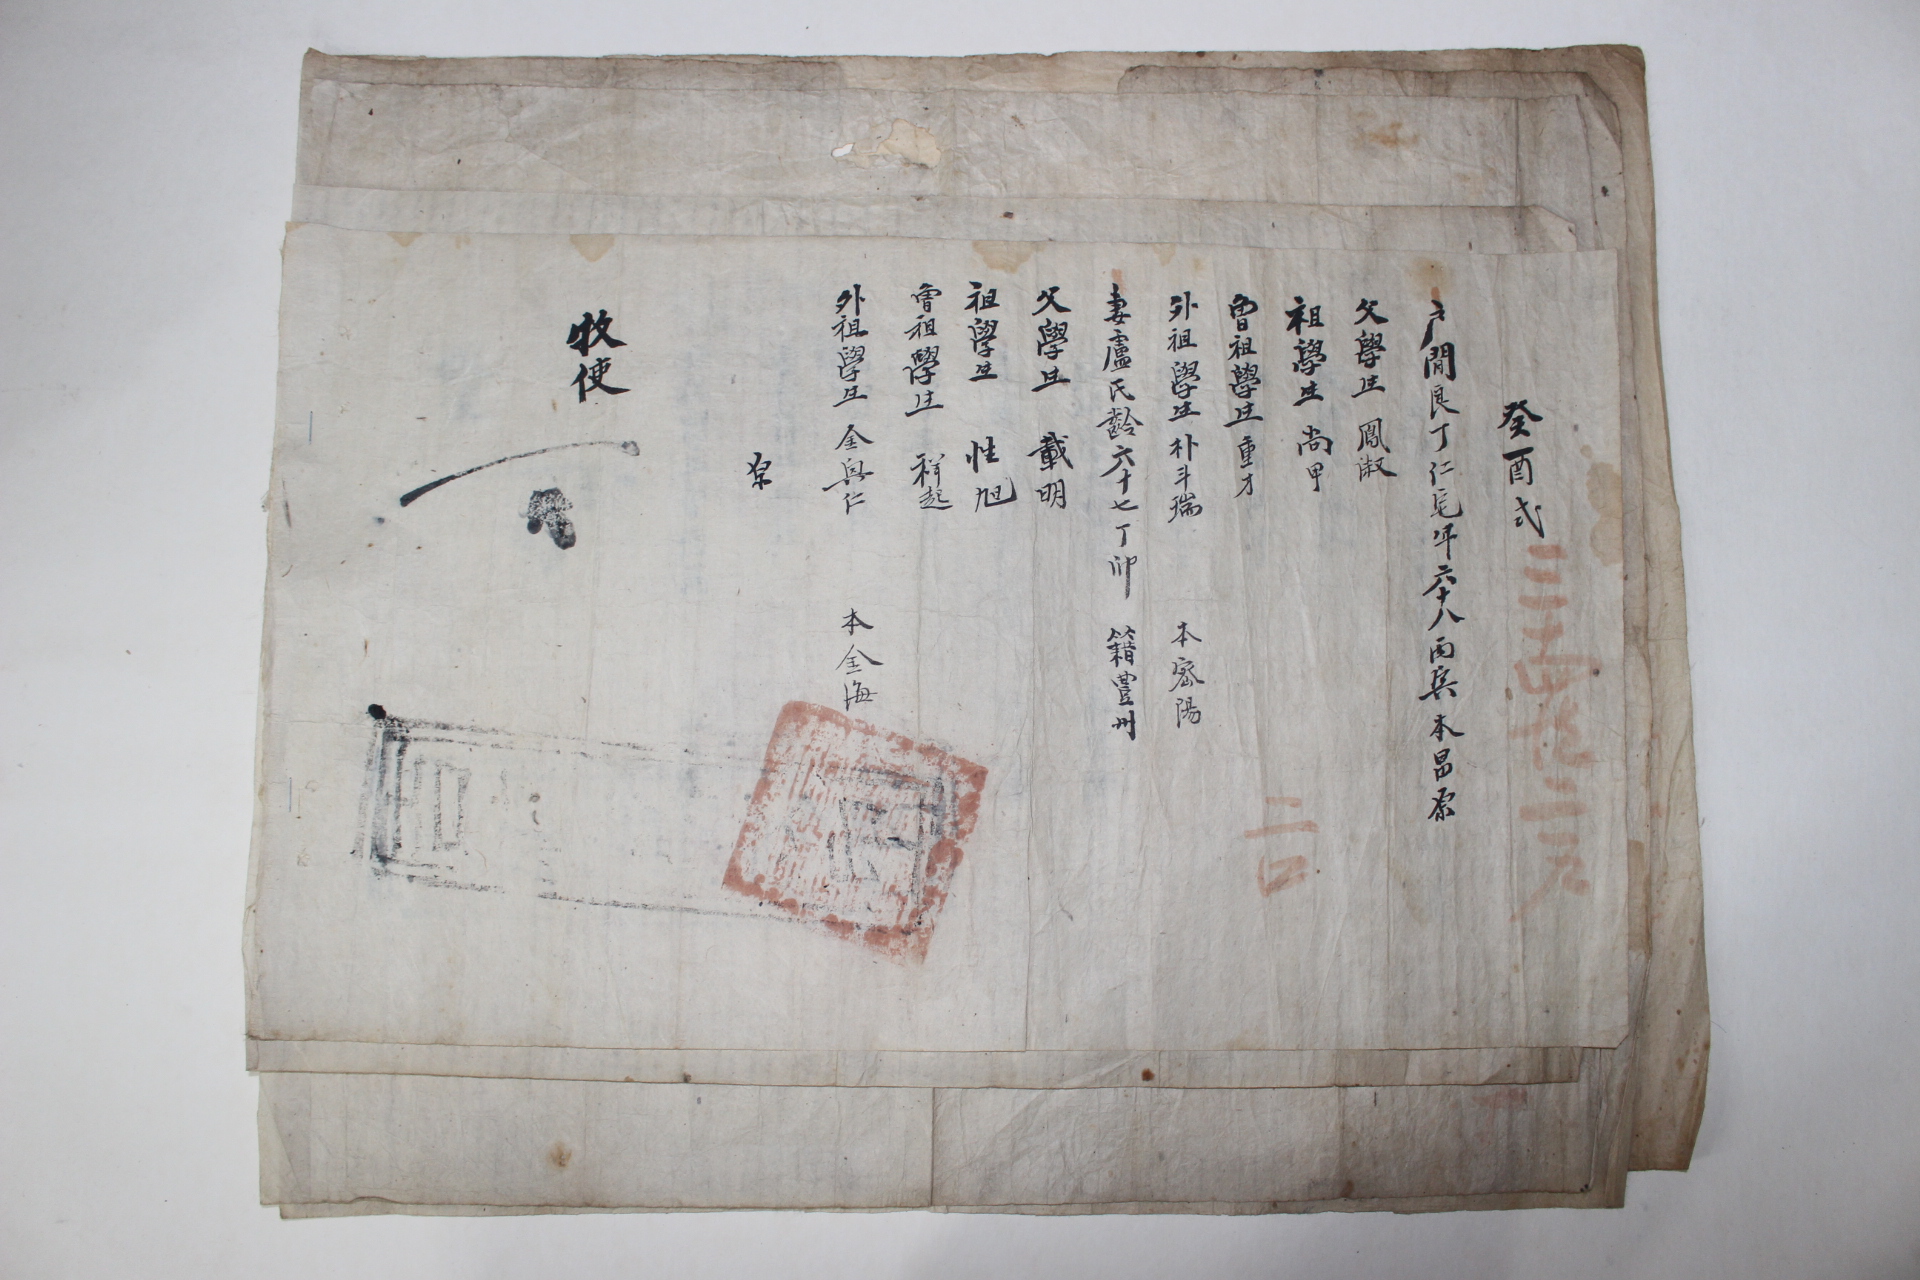 癸酉式
戶閒良丁仁 年六十八丙寅本昌原
父學生 鳳淑
祖學生 尚甲
曾祖學生 重才
外祖學生 朴斗瑞 本密陽
妻盧氏齡六十七丁卯 籍豊州
父學生 載明
祖學生 性旭
曾祖學生 祥起
外祖學生 金興仁 本金海
牧使
二口